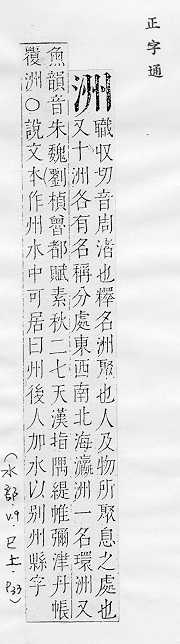 正字通
洲
職収切音周渚也釋名洲聚也人及物所聚息之處也
又十洲各有名稱分處東西南北海瀛洲一名環洲又
魚韻音朱魏劉楨魯都賦素秋二七天漢指隅緹帷彌津丹帳
覆洲○說文本作州水中可居曰州後人加水以别州縣字
(水部,